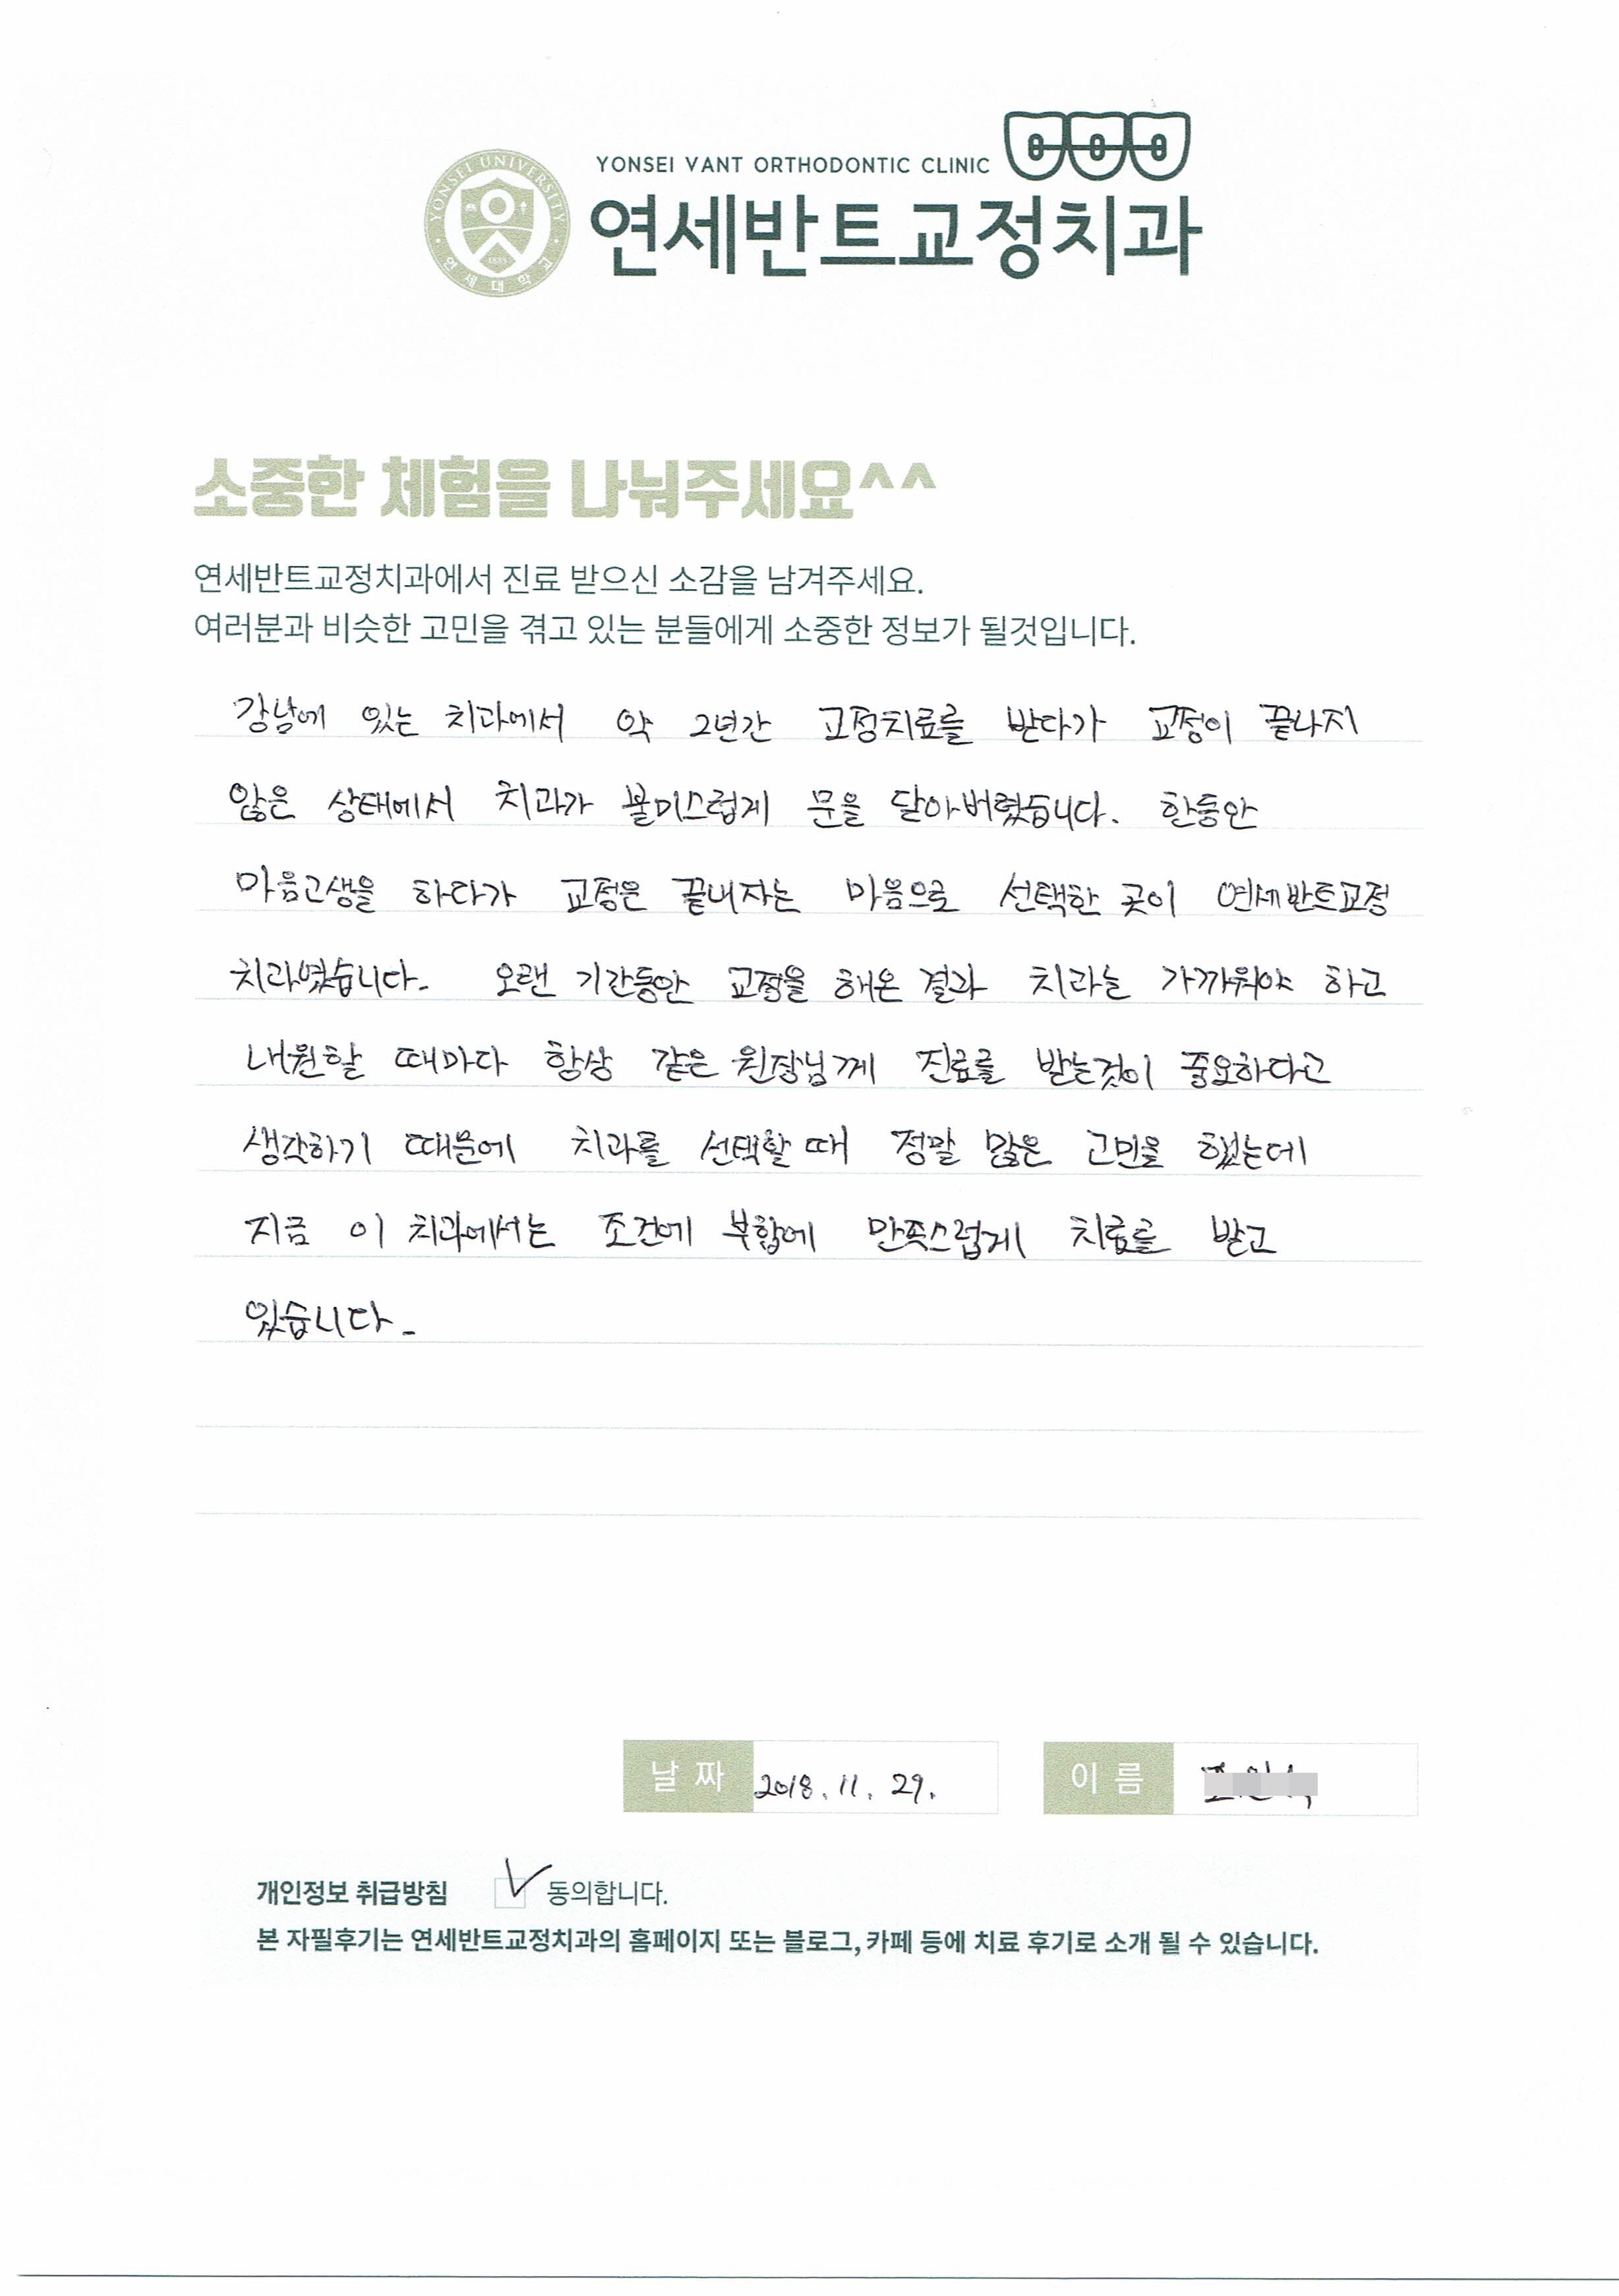 YONSEI UNIVERSITY
1885
연세대학교
YONSEI VANT ORTHODONTIC CLINIC
연세반트교정치과
소중한 체험을 나눠주세요^^
연세반트교정치과에서 진료 받으신 소감을 남겨주세요.
여러분과 비슷한 고민을 겪고 있는 분들에게 소중한 정보가 될것입니다.
강남에 있는 치과에서 약 2년간 교정치료를 받다가 교정이 끝나지
않은 상태에서 치과가 불미스럽게 문을 닫아버렸습니다. 한동안
마음고생을 하다가 교정은 끝내자는 마음으로 선택한 곳이 연세반트교정
치과였습니다. 오랜 기간동안 교정을 해온 결과 치과는 가까워야 하고
내원할 때마다 항상 같은 원장님께 진료를 받는것이 중요하다고
생각하기 때문에 치과를 선택할 때 정말 많은 고민을 했는데
지금 이 치과에서는 조건에 부합에 만족스럽게 치료를 받고
있습니다.
날짜 2018. 11. 29. 이름
개인정보 취급방침 동의합니다.
본 자필후기는 연세반트교정치과의 홈페이지 또는 블로그, 카페 등에 치료 후기로 소개 될 수 있습니다.